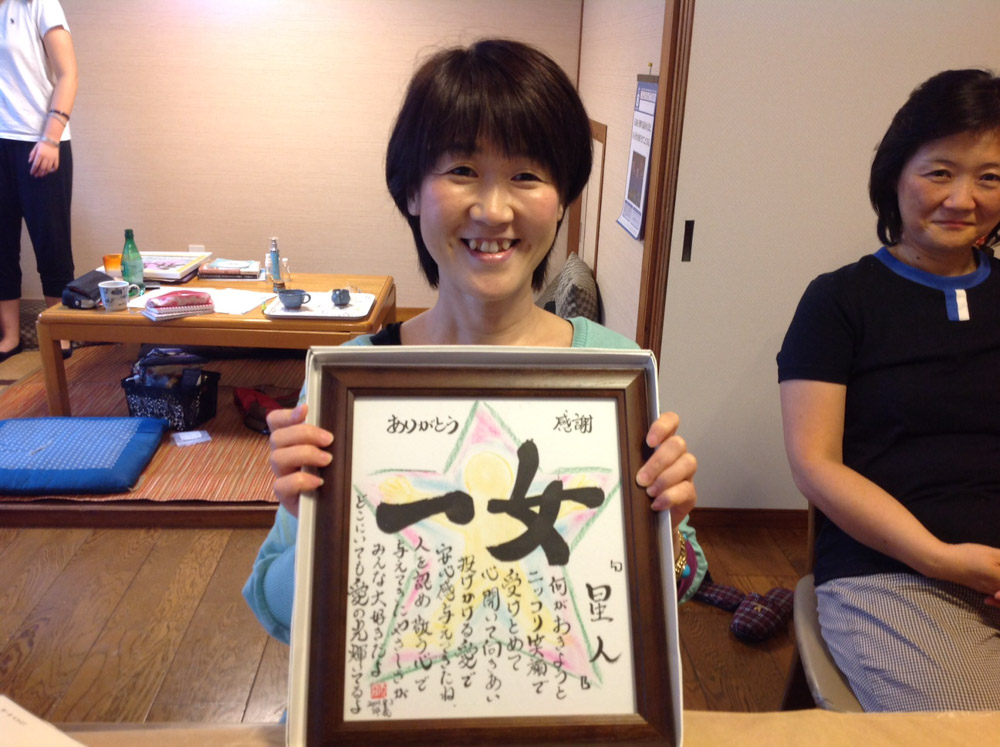 ありがとう
感謝
女
一
「星人」
何がおきようと
ニッコリ笑顔で
受けとめて
心開いて向きあい
投げかける愛で
安心感与えてきたね、
人を認め敬う心で
与えてきたやさしさが
みんな大好きだよ
どこにいても愛の光輝いてるよ